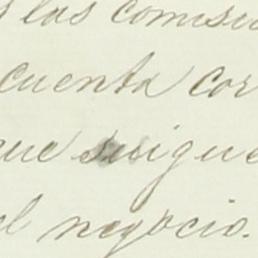 s las comisi
cuenta cor
que sigue
el negocio.